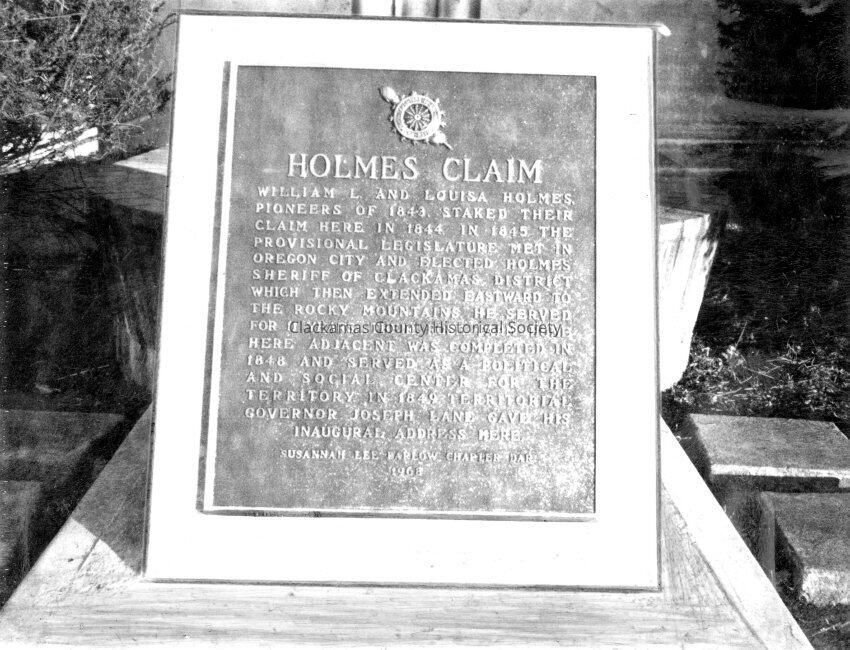 HOLMES CLAIM
WILLIAM L. AND LOUISA HOLMES,
PIONEERS OF 1843, STAKED THEIR
CLAIM HERE IN 1844. IN 1845 THE
PROVISIONAL LEGISLATURE MET IN
OREGON CITY AND ELECTED HOLMES
SHERIFF OF CLACKAMAS DISTRICT
WHICH THEN EXTENDED EASTWARD TO
THE ROCKY MOUNTAINS. HE SERVED
FOR
Clackamas County Historical Society
HERE ADJACENT WAS COMPLETED IN
1848 AND SERVED AS A POLITICAL
AND SOCIAL CENTER FOR THE
TERRITORY. IN 1849 TERRITORIAL
GOVERNOR JOSEPH LANE GAVE HIS
INAUGURAL ADDRESS HERE.
SUSANNAH LEE BARLOW CHAPTER DAR
1968